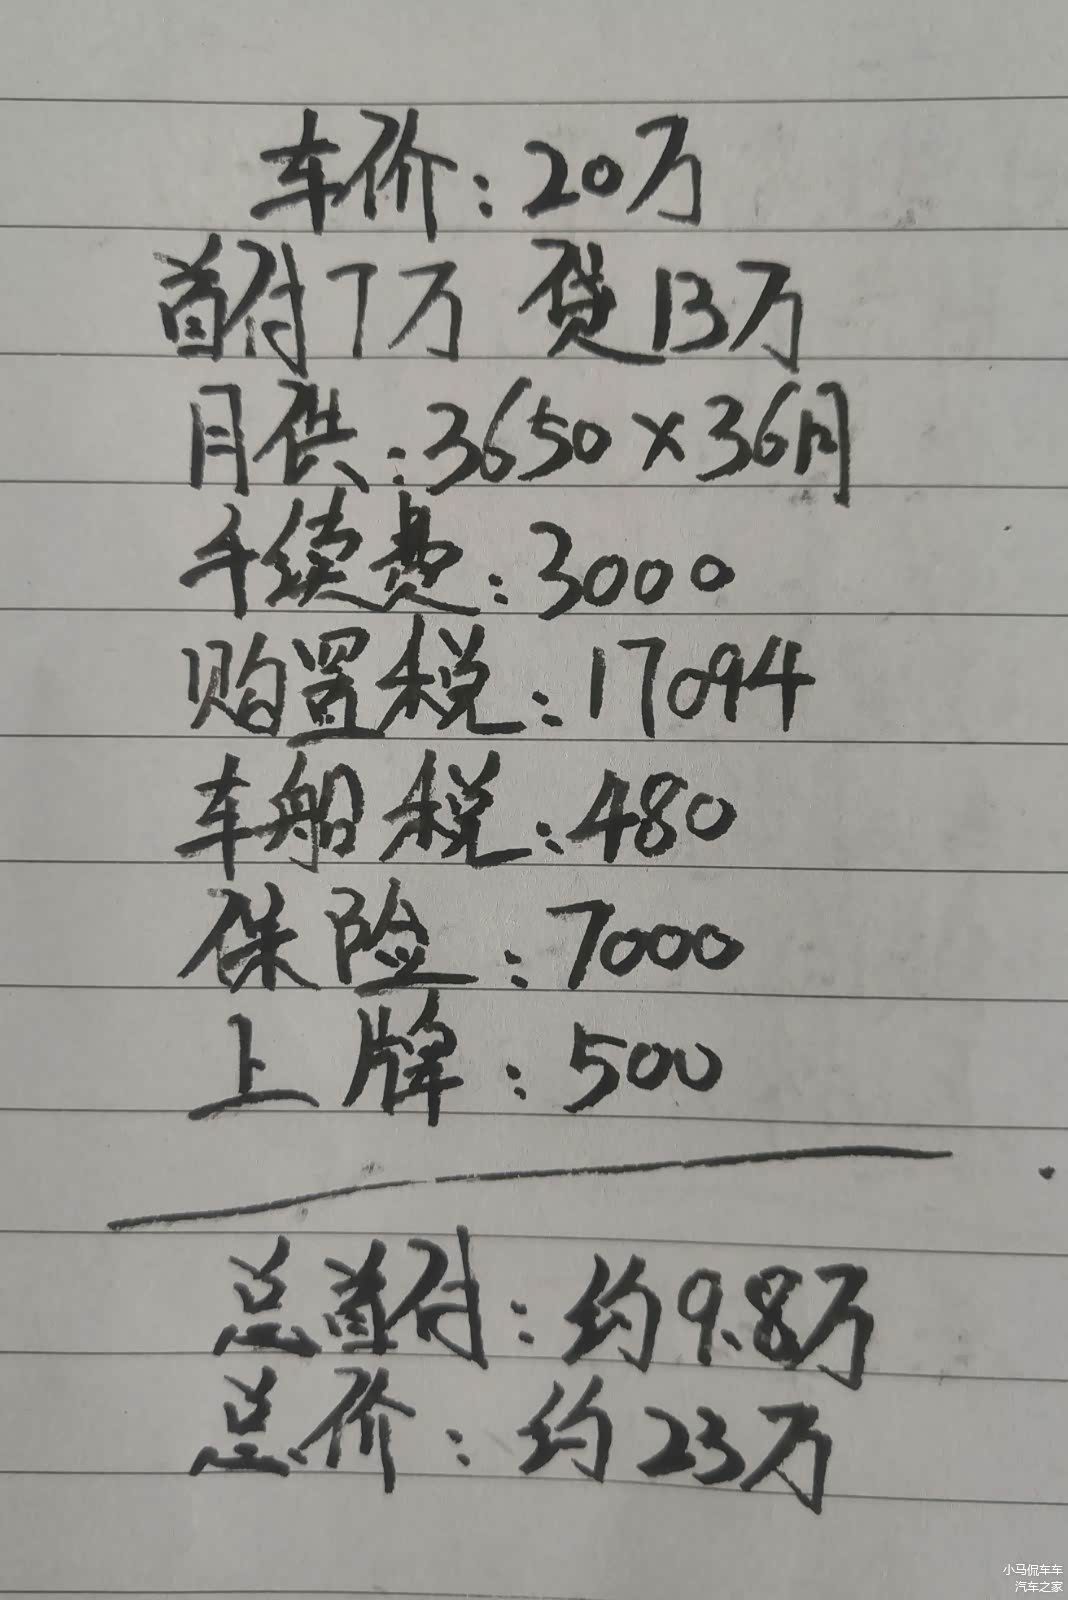 车价：20万
首付7万 贷13万
月供：3650×36月
手续费：3000
购置税：17094
车船税：480
保险：7000
上牌：500
总首付：约9.8万
总价：约23万
小马侃车车
汽车之家